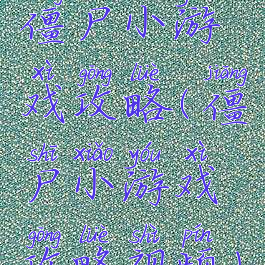 僵尸小游
xì gōng lüè jiāng
戏攻略(僵
shī xiǎo yóu xì
尸小游戏
gōng lüè shì pín
攻略视频)